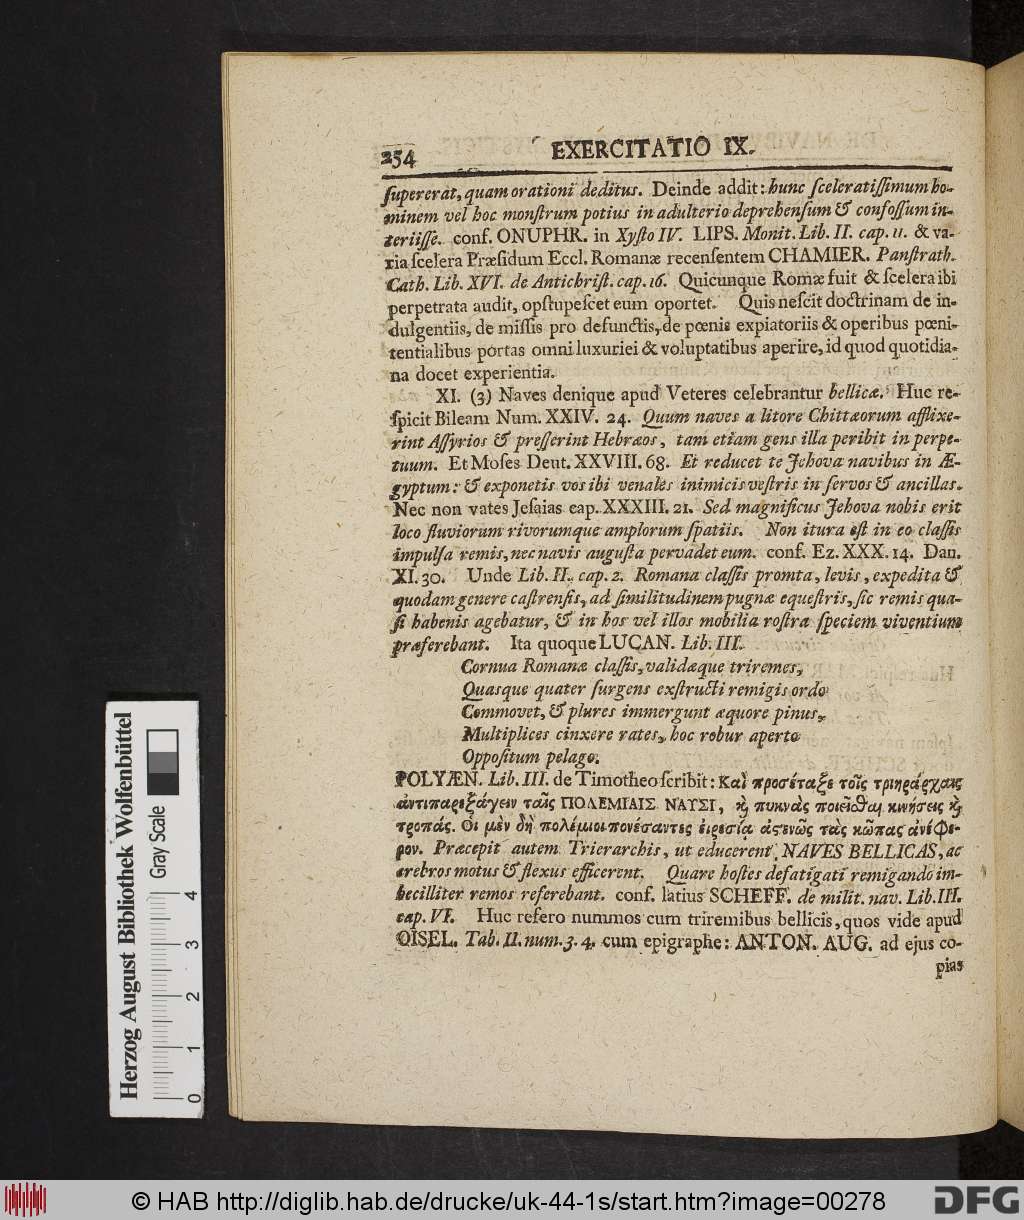 254 EXERCITATIO IX.
ſupererat, quam orationi deditus. Deinde addit: hunc ſceleratiſſimum ho-
minem vel hoc monſtrum potius in adulterio deprehenſum & confoſſum in-
teriiſſe. conf. ONUPHR. in Xyſto IV. LIPS. Monit. Lib. II. cap. 11. & va-
ria ſcelera Præſidum Eccl. Romanæ recenſentem CHAMIER. Panſtrath.
Cath. Lib. XVI. de Antichriſt. cap. 16. Quicunque Romæ fuit & ſcelera ibi
perpetrata audit, opſtupeſcet eum oportet. Quis neſcit doctrinam de in-
dulgentiis, de miſſis pro defunctis, de pœnis expiatoriis & operibus pœni-
tentialibus portas omni luxuriei & voluptatibus aperire, id quod quotidia-
na docet experientia.
XI. (3) Naves denique apud Veteres celebrantur bellicæ. Huc re-
ſpicit Bileam Num. XXIV. 24. Quum naves a litore Chittæorum afflixe-
rint Aſſyrios & preſſerint Hebræos, tam etiam gens illa peribit in perpe-
tuum. Et Moſes Deut. XXVIII. 68. Et reducet te Jehova navibus in Æ-
gyptum: & exponetis vos ibi venales inimicis veſtris in ſervos & ancillas.
Nec non vates Jeſaias cap. XXXIII. 21. Sed magnificus Jehova nobis erit
loco fluviorum rivorumque amplorum ſpatiis. Non itura eſt in eo claſſis
impulſa remis, nec navis auguſta pervadet eum. conf. Ez. XXX. 14. Dan.
XI. 30. Unde Lib. II. cap. 2. Romana claſſis promta, levis, expedita &
quodam genere caſtrenſis, ad ſimilitudinem pugnæ equeſtris, ſic remis qua-
ſi habenis agebatur, & in hos vel illos mobilia roſtra ſpeciem viventium
præferebant. Ita quoque LUCAN. Lib. III.
Cornua Romanæ claſſis, validæque triremes,
Quasque quater ſurgens exſtructi remigis ordo
Commovet, & plures immergunt æquore pinus,
Multiplices cinxere rates, hoc robur aperto
Oppoſitum pelago.
POLYÆN. Lib. III. de Timotheo ſcribit: Καὶ προσέταξε τοῖς τριηράρχαις
ἀντιπαρεξάγειν ταῖς ΠΟΛΕΜΙΑΙΣ ΝΑΥΣΙ, καὶ πυκνὰς ποιεῖσθαι κινήσεις καὶ
τροπάς. Οἱ μὲν δὴ πολέμιοι πονέσαντες εἰρεσίᾳ ἀσενῶς τὰς κῶπας ἀνέφε-
ρον. Præcepit autem Trierarchis, ut educerent NAVES BELLICAS, ac
crebros motus & flexus efficerent. Quare hoſtes defatigati remigando im-
becilliter remos referebant. conf. latius SCHEFF. de milit. nav. Lib. III.
cap. VI. Huc refero nummos cum triremibus bellicis, quos vide apud
OISEL. Tab. II. num. 3. 4. cum epigraphe: ANTON. AUG. ad ejus co-
pias
Herzog August Bibliothek Wolfenbüttel
Gray Scale
0 1 2 3 4
© HAB http://diglib.hab.de/drucke/uk-44-1s/start.htm?image=00278
DFG